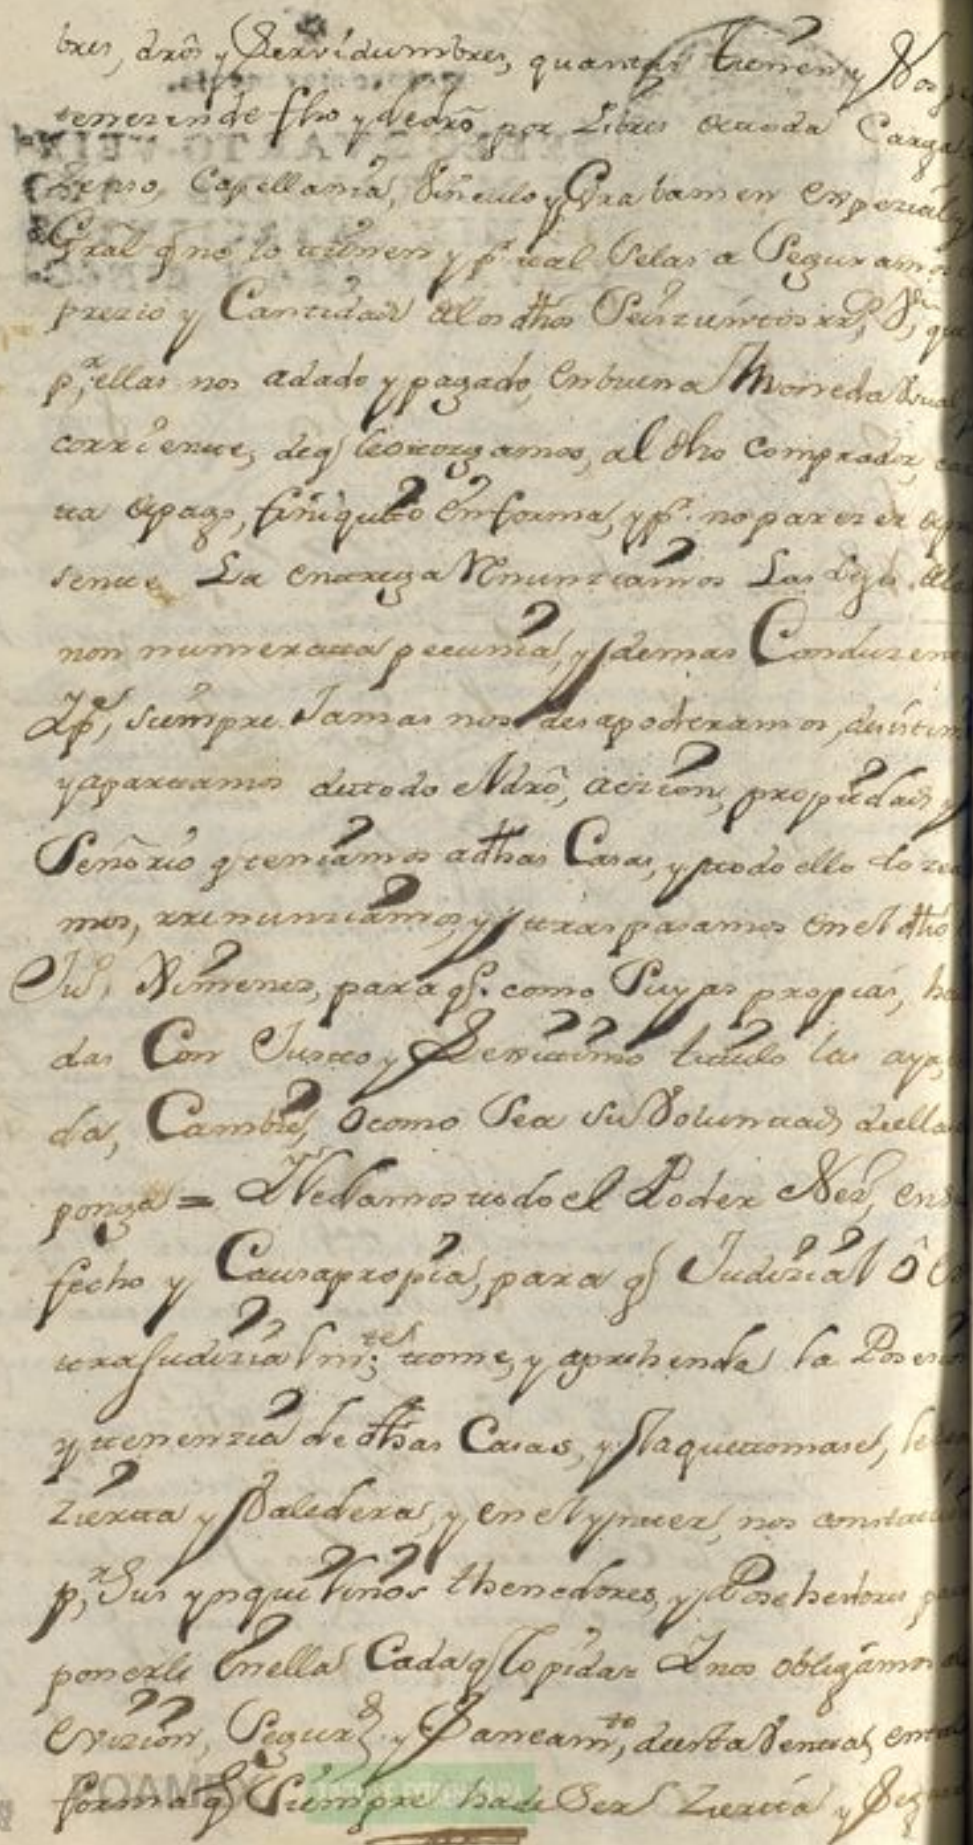 bres, drõs y Servidumbres, quantas tienen y
tener de fho y de drõ por Libres de toda Carga
Zenso, Capellania, Vinculo y Gravamen Espezial
Gral q no lo tienen y pr tal Selas a Seguramos
prezio y Cantidad de los dhos Seiszientos rrs Vn
pr ellas nos adado y pagado, en buena Moneda Usual
corriente, de q le otorgamos, al dho comprador, car
ta de pago, finiquito en forma, y pr no parezer de pre
sente La entrega Renunziamos Las Leyes de la
non numerata pecunia, y demas Conduzen
Y pa siempre Jamas nos desapoderamos, desistim
y apartamos de todo el drõ, aczion, propiedad y
Señorio q teniamos a dhas Casas, y todo ello lo zed
mos, rrenunziamos, y traspasamos en el dho
Jun Ximenes, para q como Suyas propias, ha
das Con Justo y Derecho titulo las
da, Cambie, o como Sea su Voluntad de ellas
ponga = Yle damos todo el Poder Nesº, en su
fecho y Causa propia, para q Judizial ô Es
traJudizialmte tome, y aprehenda la Poses
y tenenzia de dhas Casas, y la que tomase, le
Zierta y Valedera, y en el ynter, nos constitu
pr Sus ynquilinos thenedores, y Posehedores, pa
ponerle en ella Cada q lo pida = Y nos obligamos a
Eviszion, Segurd y Saneamto, de esta Venta, en tal
forma q Siempre ha de Ser Zierta y Segura